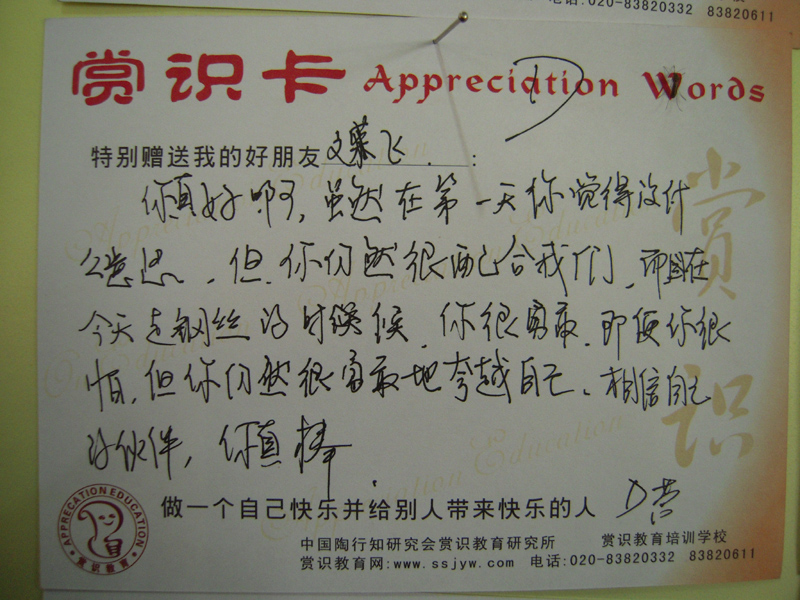 电话:020-83820332 83820611
赏识卡 Appreciation Words
特别赠送我的好朋友文慕飞:
你真好啊,虽然在第一天你觉得没什
么意思、但你仍然很配合我们、而且在
今天走钢丝的时候、你很勇敢、即便你很
怕,但你仍然很勇敢地夸越自己、相信自己
的伙伴,你真棒.
赏识
做一个自己快乐并给别人带来快乐的人
APPRECATION EDUCATION
赏识教育
中国陶行知研究会赏识教育研究所 赏识教育培训学校
赏识教育网:www.ssjyw.com 电话:020-83820332 83820611